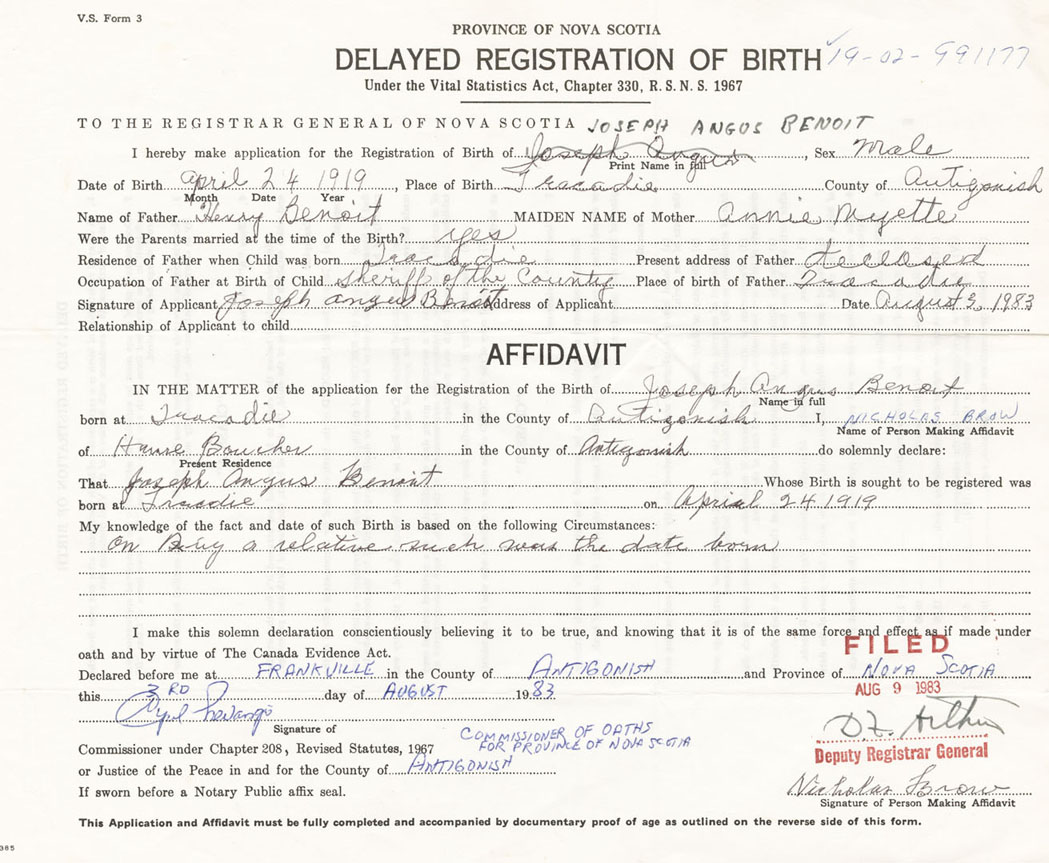 V.S. Form 3
PROVINCE OF NOVA SCOTIA
DELAYED REGISTRATION OF BIRTH 19-02-991177
Under the Vital Statistics Act, Chapter 330, R.S.N.S. 1967
TO THE REGISTRAR GENERAL OF NOVA SCOTIA JOSEPH ANGUS BENOIT
I hereby make application for the Registration of Birth of Joseph Angus, Sex Male
Print Name in full
Date of Birth April 24 1919, Place of Birth Tracadie County of Antigonish
Month Date Year
Name of Father Henry Benoit MAIDEN NAME of Mother Annie Myette
Were the Parents married at the time of the Birth? yes
Residence of Father when Child was born Tracadie Present address of Father deceased
Occupation of Father at Birth of Child Sheriff of the County Place of birth of Father Tracadie
Signature of Applicant Joseph Angus Benoit Address of Applicant Date August 3, 1983
Relationship of Applicant to child
AFFIDAVIT
IN THE MATTER of the application for the Registration of the Birth of Joseph Angus Benoit
Name in full
born at Tracadie in the County of Antigonish I, NICHOLAS BROW
Name of Person Making Affidavit
of Havre Boucher in the County of Antigonish do solemnly declare:
Present Residence
That Joseph Angus Benoit Whose Birth is sought to be registered was
born at Tracadie on Aprial 24 1919
My knowledge of the fact and date of such Birth is based on the following Circumstances:
On Being a relative such was the date born
I make this solemn declaration conscientiously believing it to be true, and knowing that it is of the same force and effect as if made under
oath and by virtue of The Canada Evidence Act.
FILED
Declared before me at FRANKVILLE in the County of ANTIGONISH and Province of NOVA SCOTIA
this 3RD day of AUGUST 1983
AUG 9 1983
Signature of
COMMISSIONER OF OATHS
FOR PROVINCE OF NOVA SCOTIA
Commissioner under Chapter 208, Revised Statutes, 1967
Deputy Registrar General
or Justice of the Peace in and for the County of ANTIGONISH
If sworn before a Notary Public affix seal.
Nicholas Brow
Signature of Person Making Affidavit
This Application and Affidavit must be fully completed and accompanied by documentary proof of age as outlined on the reverse side of this form.